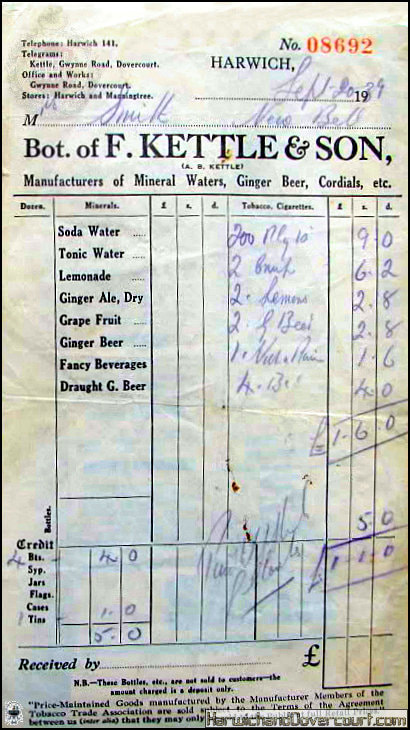 Telephone: Harwich 141.
Telegrams:
Kettle, Gwynne Road, Dovercourt.
Office and Works:
Gwynne Road, Dovercourt.
Stores: Harwich and Manningtree.
No. 08692
HARWICH,
Sept 20 1939
Mrs Smith New Bell
Bot. of F. KETTLE & SON,
(A. B. KETTLE)
Manufacturers of Mineral Waters, Ginger Beer, Cordials, etc.
Dozen. Minerals. £ s. d. Tobacco, Cigarettes. £ s. d.
Soda Water ..... 200 9 0
Tonic Water ..... 2 6 2
Lemonade ..... 2. Lemons 2 8
Ginger Ale, Dry 2. G Beer 2. 8
Grape Fruit ..... 1. 1 6
Ginger Beer ..... 4. 4 0
Fancy Beverages
Draught G. Beer
£1 - 6 0
Bottles.
5 0
£1 - 1 - 0
Credit
4 Bts. 4 0
Syp.
Jars
Flags.
Cases 1 0
1 Tins
5 0
Received by £
N.B.—These Bottles, etc., are not sold to customers—the
amount charged is a deposit only.
"Price-Maintained Goods manufactured by the Manufacturer Members of the
Tobacco Trade Association are sold subject to the Terms of the Agreement
between us (inter alia) that they may only
HarwichandDovercourt.com